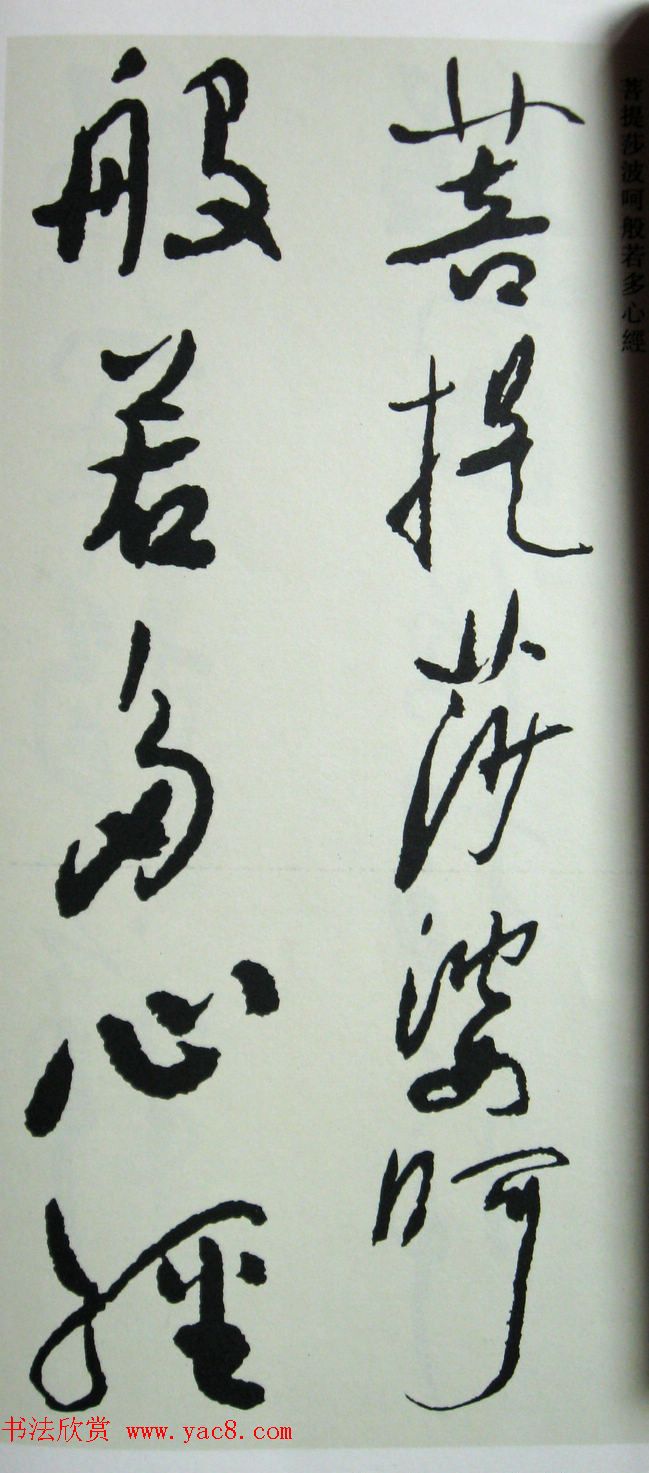 菩提莎波呵般若多心經
菩提莎婆呵
般若多心經
书法欣赏 www.yac8.com